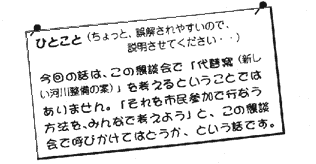 ひとこと(ちょっと、誤解されやすいので、
説明させてください・・)
今回の話は、この懇談会で「代替案(新し
い河川整備の案)」を考えるということでは
ありません。「それを市民参加で行なう
方法を、みんなで考えよう」と、この懇談
会で呼びかけてはどうか、という話です。